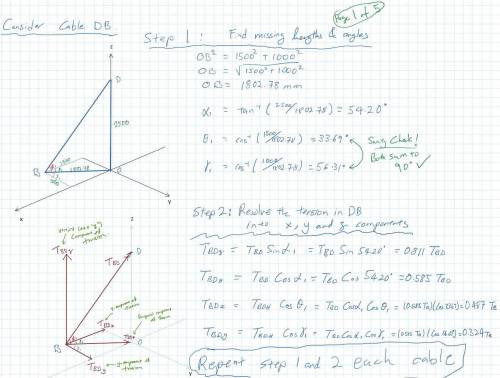 Consider Cable DB.
Page 1 of 5
Step 1: Find missing lengths & angles
OB² = 1500² + 1000²
OB = √1500² + 1000²
OB = 1802.78 mm
α₁ = tan⁻¹ (2500/1802.78) = 54.20°
θ₁ = cos⁻¹ (1500/1802.78) = 33.69°
γ₁ = cos⁻¹ (1000/1802.78) = 56.31°
Sanity Check!
Both sum to
90° ✓
z
D
2500
B
1802.78
O
x
y
Step 2: Resolve the tension in DB
into x, y and z components
T_BDz = T_BD Sin α₁ = T_BD Sin 54.20° = 0.811 T_BD
T_BDH = T_BD Cos α₁ = T_BD Cos 54.20° = 0.585 T_BD
T_BDx = T_BDH Cos θ₁ = T_BD Cos α₁ Cos θ₁ = 0.487 T_BD
T_BDy = T_BDH Cos γ₁ = T_BD Cos α₁ Cos γ₁ = 0.324 T_BD
Repeat step 1 and 2 each cable
component of
tension
T_BDz
T_BD
D
component of tension
T_BDx
component of tension
T_BDH
B
O
T_BDy
y-component of
tension
y